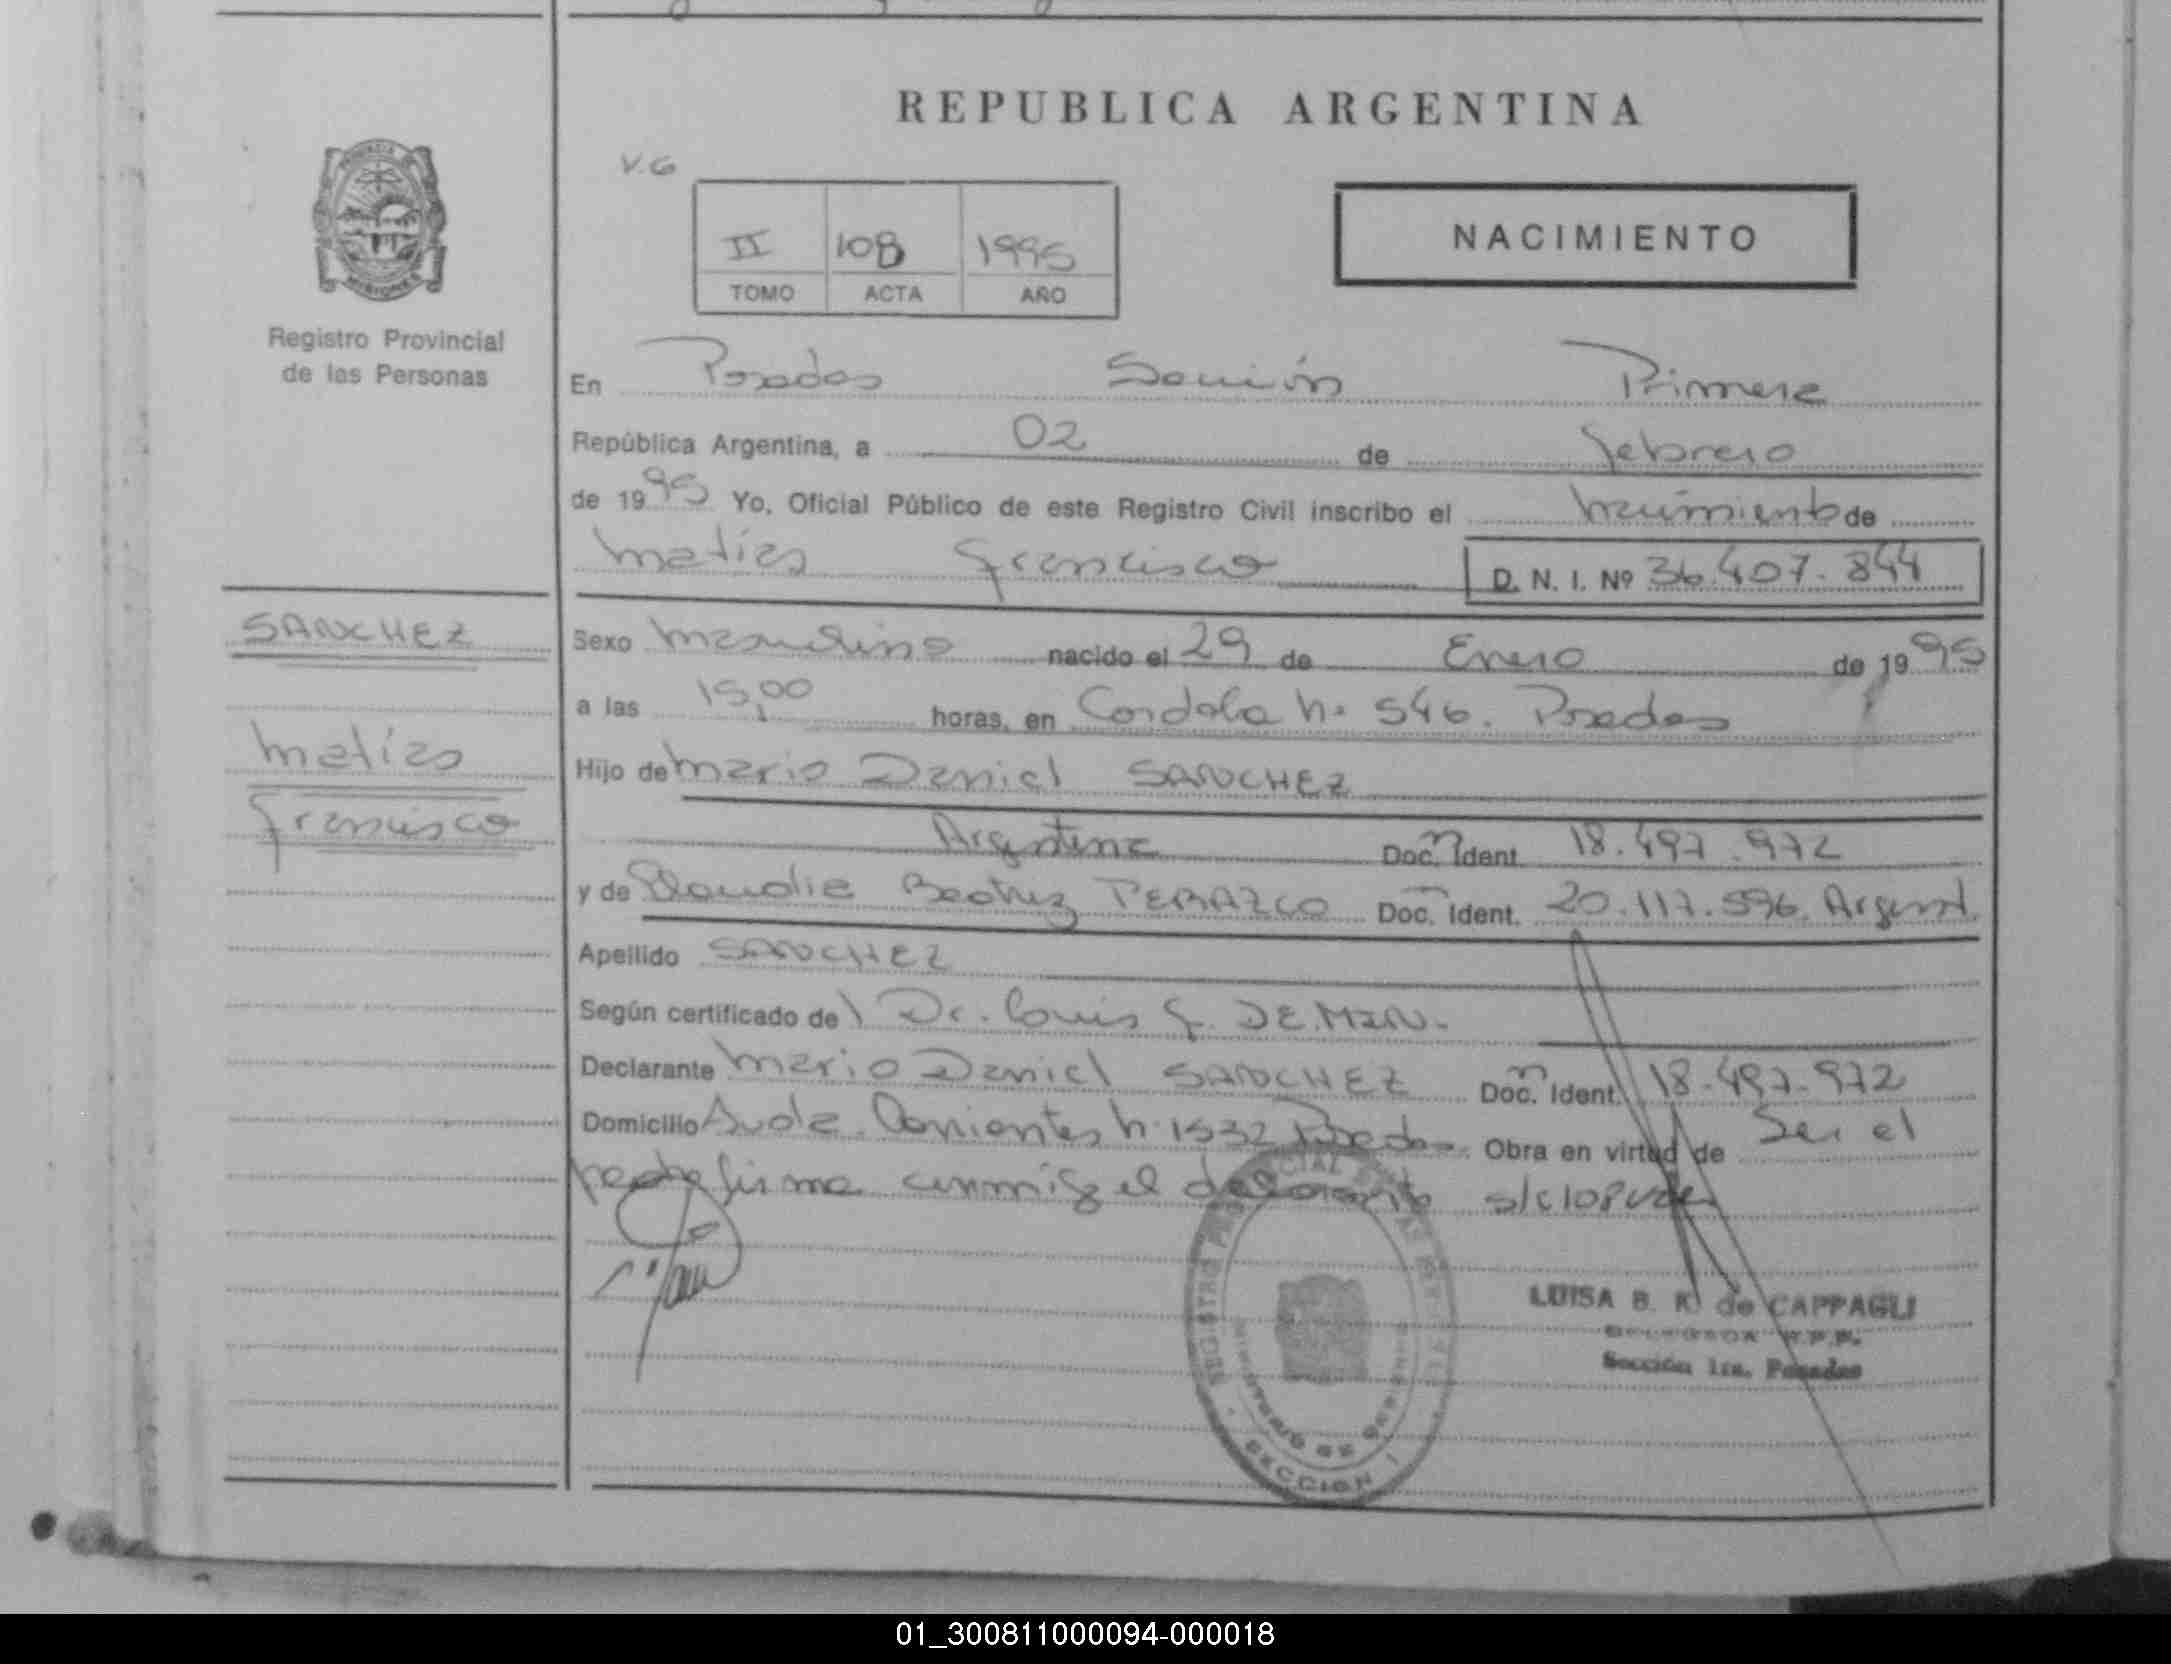 REPUBLICA ARGENTINA
V.G
II 108 1995
TOMO ACTA AÑO
NACIMIENTO
Registro Provincial
de las Personas
En Posadas Sección Primera
República Argentina, a 02 de febrero
de 1995 Yo, Oficial Público de este Registro Civil inscribo el nacimiento de
Matías Francisco D. N. I. Nº 36.407.844
SANCHEZ
Matías
Francisco
Sexo Masculino nacido el 29 de Enero de 1995
a las 15,00 horas, en Cordoba Nº 546. Posadas
Hijo de Mario Daniel SANCHEZ
Argentina Doc. Ident. 18.497.972
y de Claudia Beatriz PERAZZO Doc. Ident. 20.117.596. Argent.
Apellido SANCHEZ
Según certificado del Dr. Louis F. DE.MAN.
Declarante Mario Daniel SANCHEZ Doc. Ident. 18.497.972
Domicilio Avda. Corrientes Nº 1532 Posadas. Obra en virtud de Ser el
padre firma conmigo el declarante s/c 108 vale
REGISTRO PROVINCIAL DE LAS PERSONAS
MINISTERIO DE GOBIERNO
SECCION 1
LUISA B. R. de CAPPAGLI
DELEGADA R.P.P.
Sección 1ra. Posadas
01_300811000094-000018